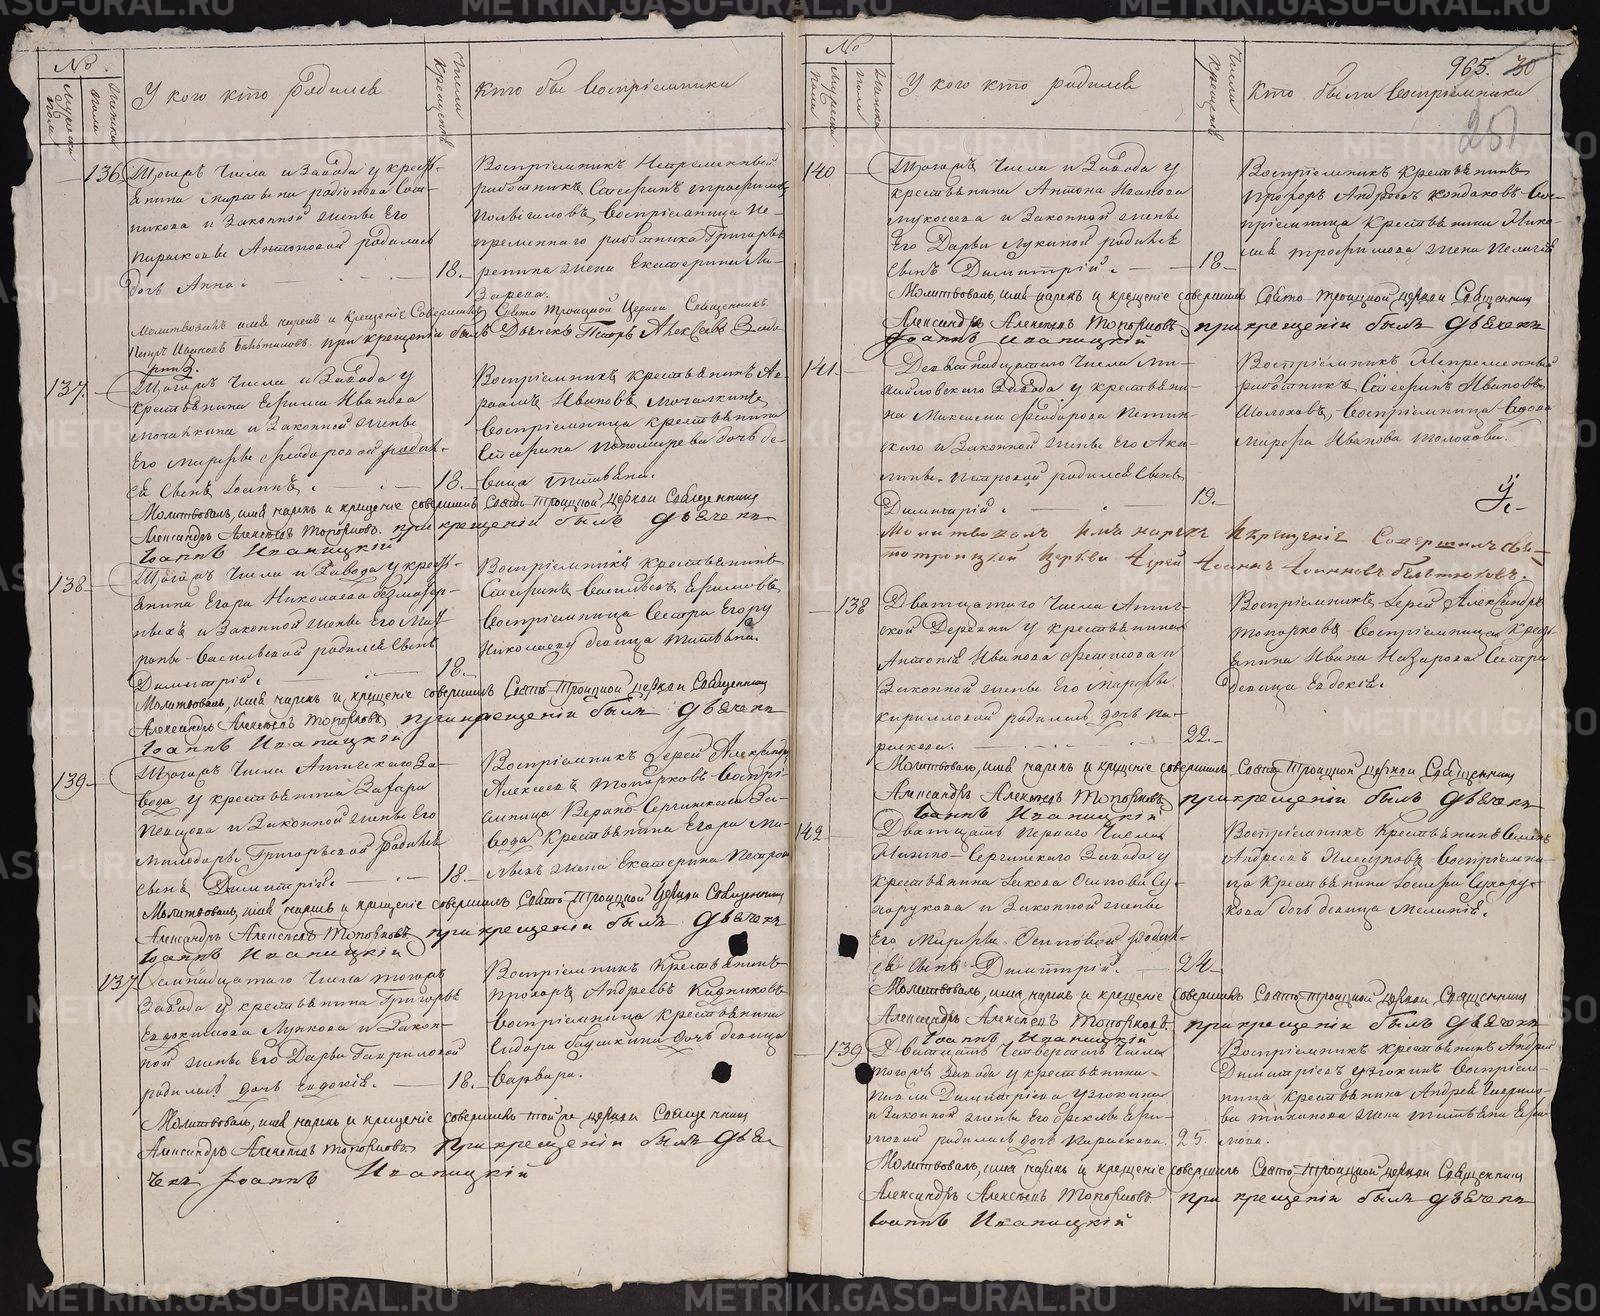 №
Мужеска пола
Женска пола
У кого кто родился
Число крещенія
Кто были воспріемники
136. Тогожъ Числа и Завода у кресть-
янина Мартына Родіонова Сот-
никова и Законной жены Его
Параскевы Антоновой родилась
дочь Анна. 18.
Воспріемникъ Непременный
работникъ Стефанъ Трофимовъ
Воспріемница Не-
пременнаго работника Григорья
Репина жена Екатерина Ла-
зарева.
Молитвовалъ имя нарекъ и крещеніе Совершилъ Свято Троицкой Церкви Священникъ
Петръ Ивановъ при крещеніи былъ Дьячекъ Петръ Алексѣевъ
137. Тогожъ Числа и Завода у
крестьянина Ефима Иванова
Мочалкина и Законной жены
Его Марфы Феодоровой родил-
ся Сынъ Іоаннъ. 18.
Воспріемникъ крестьянинъ Ав-
раамъ Ивановъ Мочалкинъ,
Воспріемница крестьянина
Стефана Пономарева дочь де-
вица Татьяна.
Молитвовалъ, имя нарекъ и крещеніе совершилъ Свято-Троицкой церкви Священникъ
Александръ Алексѣевъ Топорковъ. При крещеніи былъ дьячекъ
Іоаннъ Иваницкій
138. Тогожъ Числа и Завода у кресть-
янина Егора Николаева
и Законной жены Его Мат-
роны Васильевой родился Сынъ
Димитрій. 18.
Воспріемникъ крестьянинъ
Стефанъ Васильевъ Ефимовъ
Воспріемница Сестра Егору
Николаеву девица Татьяна.
Молитвовалъ, имя нарекъ и крещеніе совершилъ Свято-Троицкой церкви Священникъ
Александръ Алексѣевъ Топорковъ при крещеніи былъ дьячекъ
Іоаннъ Иваницкій
139. Тогожъ Числа Атигскаго За-
вода у крестьянина Захара
Певцова и Законной жены Его
Миладоры Григорьевой родился
сынъ Димитрій. 18.
Воспріемникъ Іерей Александръ
Алексѣевъ Топорковъ Воспрі-
емница Верхно-Сергинскаго За-
вода крестьянина Егора
жена Екатерина Петрова
Молитвовалъ, имя нарекъ и крещеніе совершилъ Свято-Троицкой Церкви Священникъ
Александръ Алексѣевъ Топорковъ при крещеніи былъ дьячекъ
Іоаннъ Иваницкій
137. числа тогожъ
Завода у крестьянина Григорья
Евдокимова Лункова и Закон-
ной жены Его Дарьи Гавриловой
родилась дочь Евдокія. 18.
Воспріемникъ крестьянинъ
Прохоръ Андреевъ
воспріемница крестьянина
Сидора дочь девица
Варвара.
Молитвовалъ, имя нарекъ и крещеніе совершилъ той же церкви Священникъ
Александръ Алексѣевъ Топорковъ при крещеніи былъ дья-
чекъ Іоаннъ Иваницкій
№
Мужеска пола
Женска пола
У кого кто родился
Число крещенія
Кто были Воспріемники
965. 30
140 Тогожъ Числа и Завода у
крестьянина Антона Иванова
Мукосеева и Законной жены
Его Дарьи Лукиной родился
Сынъ Димитрій. 18.
Воспріемникъ крестьянинъ
Прохоръ Андреевъ Кондаковъ Вос-
пріемница Крестьянина Нико-
лая Трофимова жена Пелагея
Молитвовалъ, имя нарекъ и крещеніе совершилъ Свято-Троицкой церкви Священникъ
Александръ Алексѣевъ Топорковъ при крещеніи былъ дьячекъ
Іоаннъ Иваницкій
141. Девятнадцатаго Числа Ми-
хайловскаго Завода у крестьяни-
на Максима Феодорова
и Законной жены Его Аку-
лины Петровой родился Сынъ
Димитрій. 19.
Воспріемникъ Непременный
работникъ Стефанъ Ивановъ
Шолоховъ, Воспріемница Вдова
Марфа Иванова Шолохова.
Молитвовалъ имя нарекъ и крещеніе Совершилъ Свя-
тотроицкой церкви Іерей Іоаннъ Іоанновъ
138 Дватцатаго Числа Атиг-
ской Деревни у крестьянина
Антонія Иванова и
Законной жены Его Марфы
Кирилловой родилась дочь Па-
раскева. 22.
Воспріемникъ Іерей Александръ
Топорковъ Воспріемница Кресть-
янина Ивана Назарова Сестра
девица Евдокія.
Молитвовалъ, имя нарекъ и крещеніе совершилъ Свято-Троицкой церкви Священникъ
Александръ Алексѣевъ Топорковъ при крещеніи былъ дьячекъ
Іоаннъ Иваницкій
142 Дватцать перваго Числа
Нижно-Сергинскаго Завода у
крестьянина Іакова Осипова Су-
хорукова и Законной жены
Его Марфы Осиповой родил-
ся Сынъ Димитрій. 24.
Воспріемникъ Крестьянинъ
Андреевъ Плясуновъ Воспріемни-
ца Крестьянина Іосифа Сухору-
кова дочь девица Меланія.
Молитвовалъ, имя нарекъ и крещеніе совершилъ Свято-Троицкой церкви Священникъ
Александръ Алексѣевъ Топорковъ. при крещеніи былъ дьячекъ
Іоаннъ Иваницкій
139 Дватцать Четвертаго Числа
тогожъ Завода у крестьянина
Павла Димитріева
и Законной жены Его Феклы Ефи-
мовой родилась дочь Параскева. 25.
Воспріемникъ крестьянинъ Андрей
Димитріевъ Воспріем-
ница крестьянина Андрея
жена Татьяна Ефи-
мова.
Молитвовалъ, имя нарекъ и крещеніе совершилъ Свято-Троицкой церкви Священникъ
Александръ Алексѣевъ Топорковъ. при крещеніи былъ дьячекъ
Іоаннъ Иваницкій
METRIKI.GASO-URAL.RU